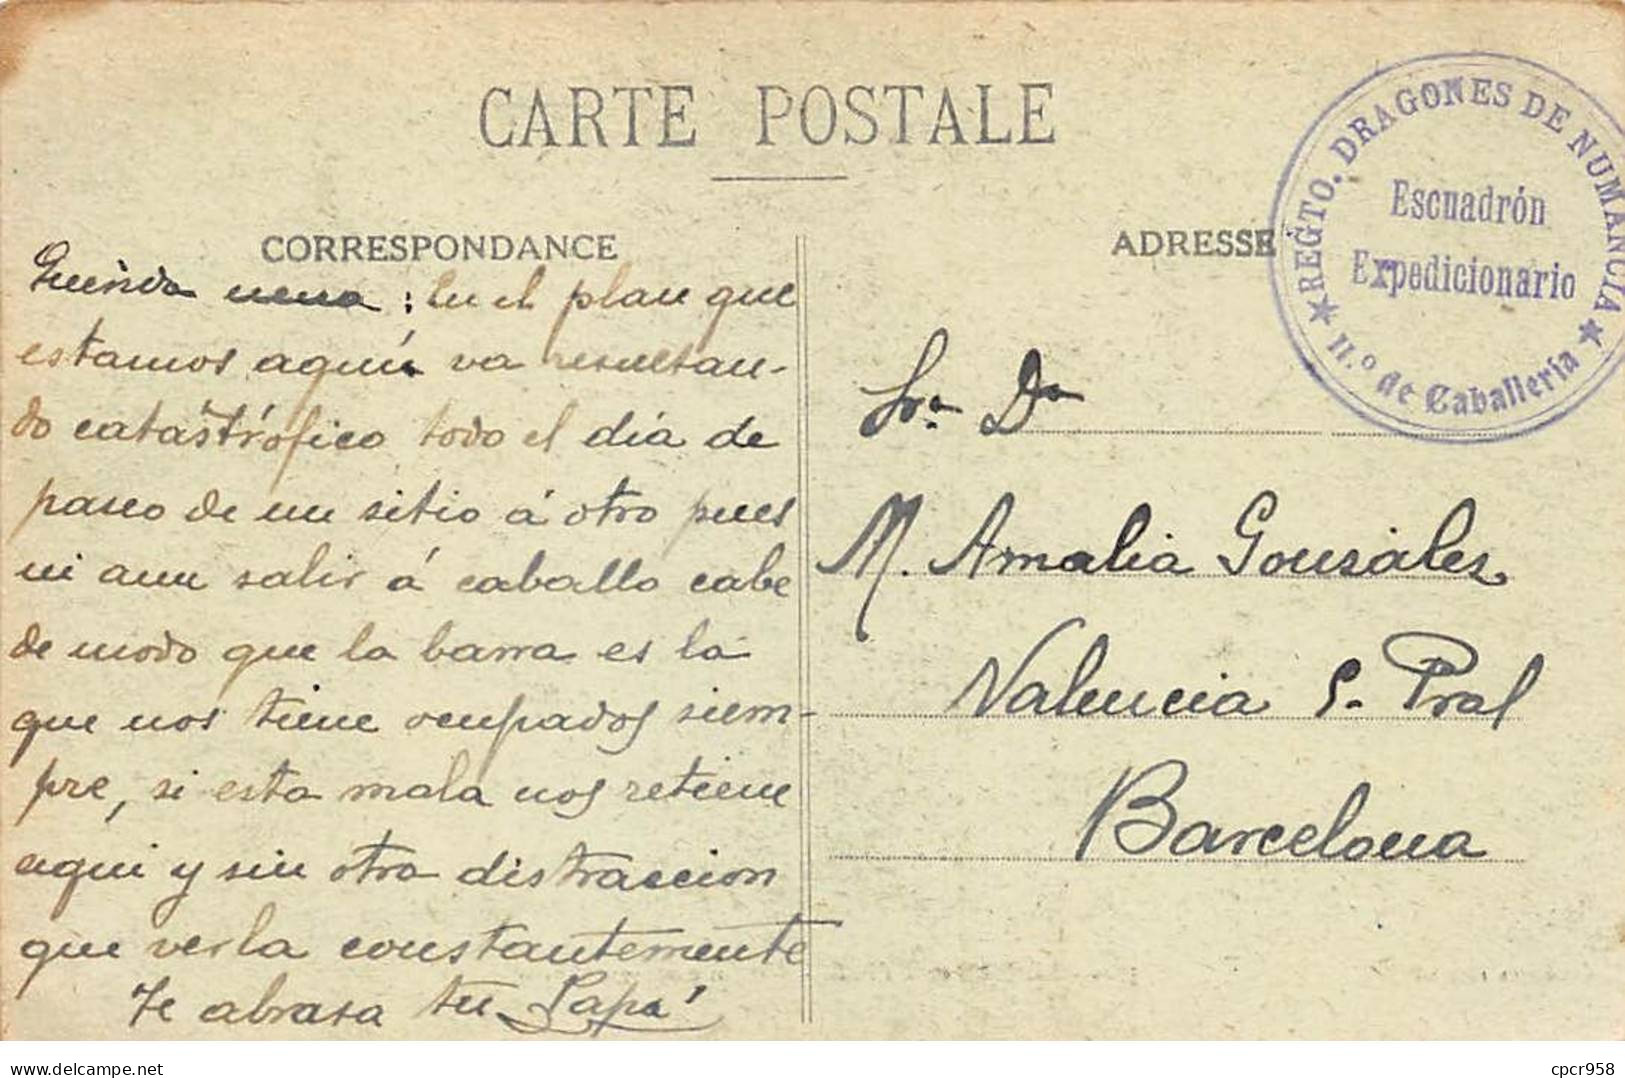 CARTE POSTALE
CORRESPONDANCE
ADRESSE
REGTO. DRAGONES DE NUMANCIA
Escuadrón
Expedicionario
★ 11.º de Caballería ★
Querida nena: En el plan que
estamos aquí va resultan-
do catastrófico todo el día de
paseo de un sitio á otro pues
ni aun salir á caballo cabe
de modo que la barra es la
que nos tiene ocupados siem-
pre, si esta mala nos retiene
aqui y sin otra distraccion
que verla constantemente
Te abrasa tu Papá
Sra. Da
M. Amalia Gonsáles
Valencia 5- Pral
Barcelona
www.delcampe.net
cpcr958